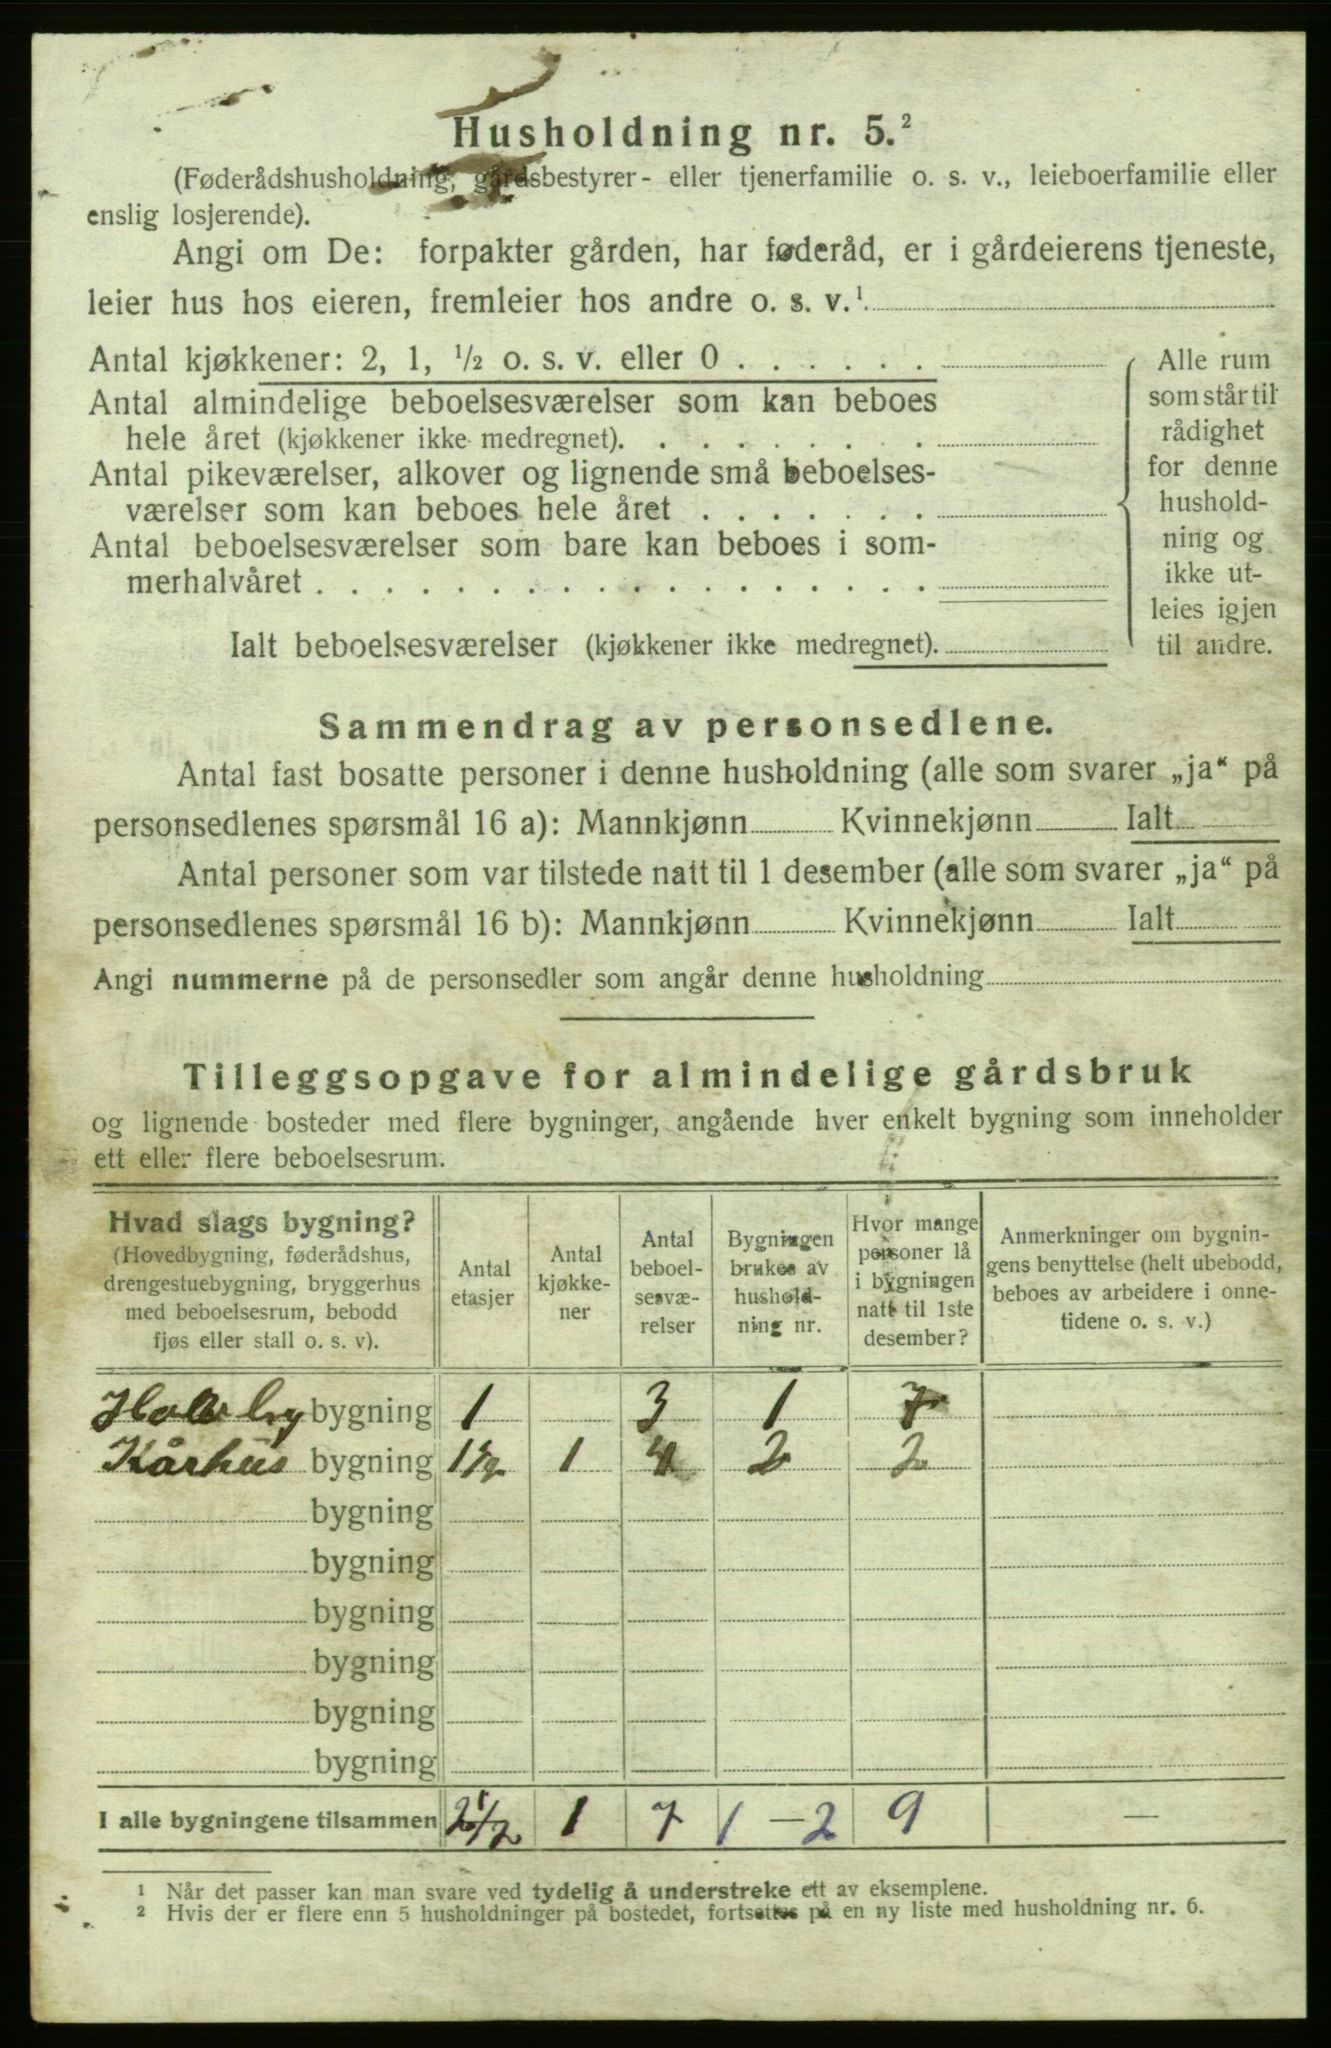 Husholdning nr. 5.²
(Føderådshusholdning, gårdsbestyrer- eller tjenerfamilie o. s. v., leieboerfamilie eller
enslig losjerende).
Angi om De: forpakter gården, har føderåd, er i gårdeierens tjeneste,
leier hus hos eieren, fremleier hos andre o. s. v.¹
Antal kjøkkener: 2, 1, ½ o. s. v. eller 0 . . . . . .
Antal almindelige beboelsesværelser som kan beboes
hele året (kjøkkener ikke medregnet). . . . . . . . .
Antal pikeværelser, alkover og lignende små beboelses-
værelser som kan beboes hele året . . . . . . .
Antal beboelsesværelser som bare kan beboes i som-
merhalvåret . . . . . . . . . . . . . . . . . .
Ialt beboelsesværelser (kjøkkener ikke medregnet).
Alle rum
som står til
rådighet
for denne
hushold-
ning og
ikke ut-
leies igjen
til andre.
Sammendrag av personsedlene.
Antal fast bosatte personer i denne husholdning (alle som svarer „ja“ på
personsedlenes spørsmål 16 a): Mannkjønn Kvinnekjønn Ialt
Antal personer som var tilstede natt til 1 desember (alle som svarer „ja“ på
personsedlenes spørsmål 16 b): Mannkjønn Kvinnekjønn Ialt
Angi nummerne på de personsedler som angår denne husholdning
Tilleggsopgave for almindelige gårdsbruk
og lignende bosteder med flere bygninger, angående hver enkelt bygning som inneholder
ett eller flere beboelsesrum.
Hvad slags bygning?
(Hovedbygning, føderådshus,
drengestuebygning, bryggerhus
med beboelsesrum, bebodd
fjøs eller stall o. s. v).
Antal
etasjer
Antal
kjøkke-
ner
Antal
beboel-
sesvæ-
relser
Bygningen
brukes av
hushold-
ning nr.
Hvor mange
personer lå
i bygningen
natt til 1ste
desember?
Anmerkninger om bygnin-
gens benyttelse (helt ubebodd,
beboes av arbeidere i onne-
tidene o. s. v.)
bygning 1 3 1 7
Kårhus bygning 1½ 1 4 2 2
bygning
bygning
bygning
bygning
bygning
bygning
I alle bygningene tilsammen 2½ 1 7 1–2 9 —
¹ Når det passer kan man svare ved tydelig å understreke ett av eksemplene.
² Hvis der er flere enn 5 husholdninger på bostedet, fortsettes på en ny liste med husholdning nr. 6.